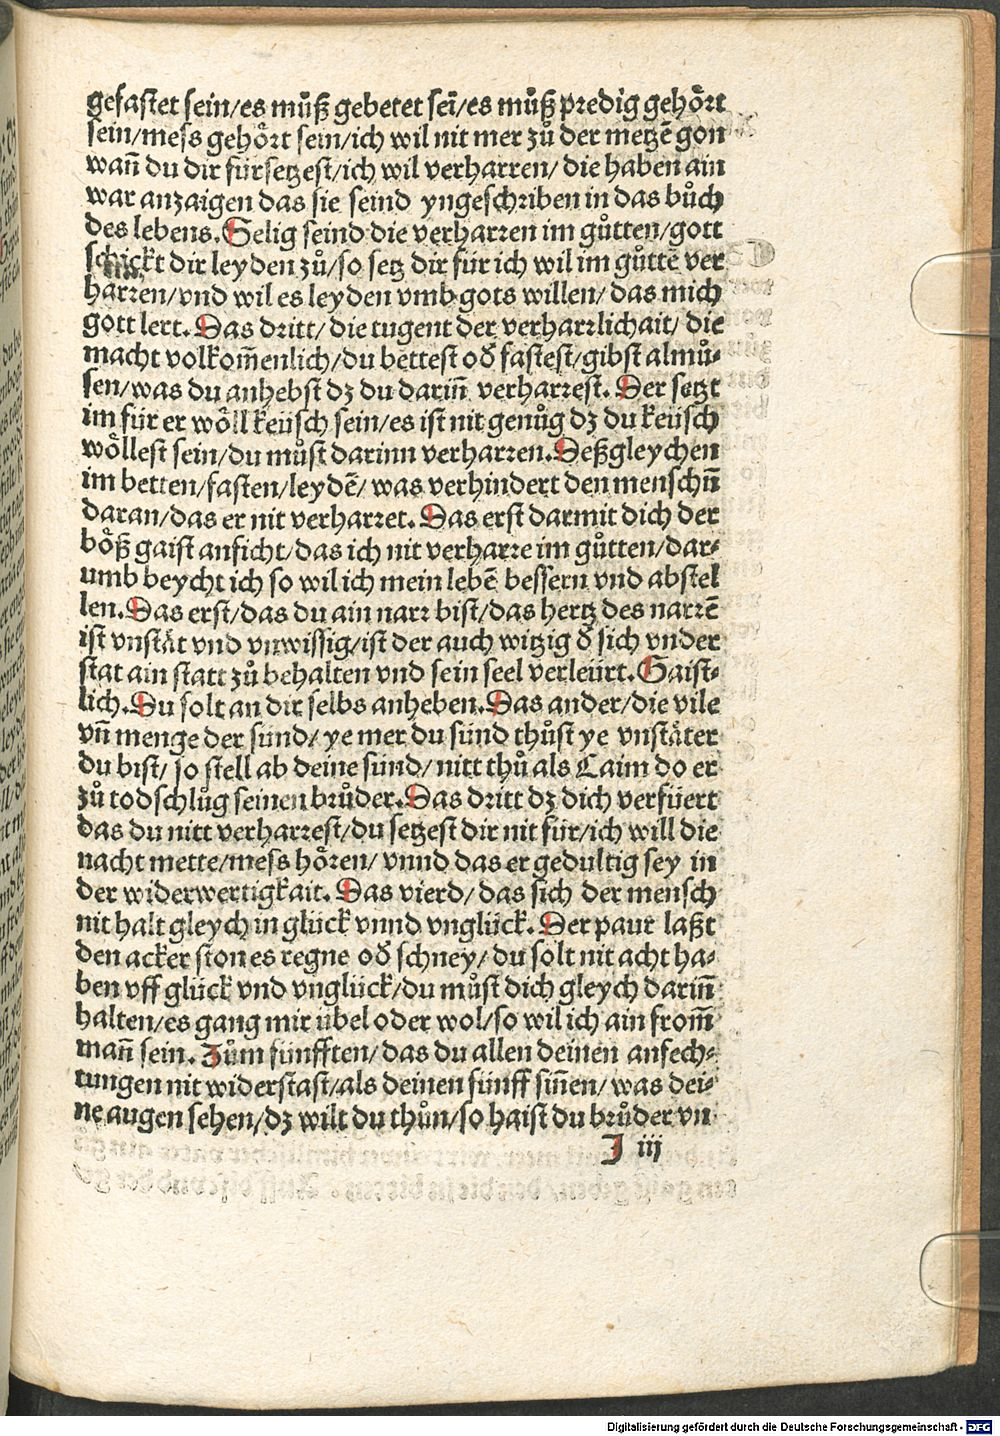 gefastet sein/es můß gebetet sei᷑/es můß predig gehört
sein/mess gehört sein/ich wil nit mer zů der metzē gon
wañ du dir fürsetzest/ich wil verharren/die haben ain
war anzaigen das sie seind yngeschriben in das bůch
des lebens. Selig seind die verharren im gůtten/gott
schickt dir leyden zů/so setz dir für ich wil im gůttē ver
harren/vnd wil es leyden vmb gots willen/das mich
gott lert. Das dritt/die tugent der verharrlichait/die
macht volkom̄enlich/du bettest oď fastest/gibst almů⸗
sen/was du anhebst dz du dariñ verharrest. Der setzt
im für er wöll keüsch sein/es ist nit genůg dz du keüsch
wöllest sein/du můst darinn verharren. Deßgleychen
im betten/fasten/leydē/was verhindert den menschñ
daran/das er nit verharret. Das erst darmit dich der
böß gaist anficht/das ich nit verharre im gůtten/dar⸗
umb beycht ich so wil ich mein lebē bessern vnd abstel
len. Das erst/das du ain narr bist/das hertz des narrē
ist vnstät vnd vnwissig/ist der auch witzig ď sich vnder
stat ain statt zů behalten vnd sein seel verleürt. Gaist⸗
lich. Du solt an dir selbs anheben. Das ander/die vile
vñ menge der sünd/ye mer du sünd thůst ye vnstäter
du bist/so stell ab deine sünd/nitt thů als Caim do er
zů todschlůg seinen brůder. Das dritt dz dich verfüert
das du nitt verharrest/du setzest dir nit für/ich will die
nacht mette/mess hören/vnnd das er gedultig sey in
der widerwertigkait. Das vierd/das sich der mensch
nit halt gleych in glück vnnd vnglück. Der paur laßt
den acker ston es regne oď schney/du solt nit acht ha⸗
ben vff glück vnd vnglück/du můst dich gleych dariñ
halten/es gang mir übel oder wol/so wil ich ain from̄
mañ sein. Zům fünfften/das du allen deinen anfech⸗
tungen nit widerstast/als deinen fünff siñen/was dei⸗
ne augen sehen/dz wilt du thůn/so haist du brůder vn
J iij
Digitalisierung gefördert durch die Deutsche Forschungsgemeinschaft - DFG